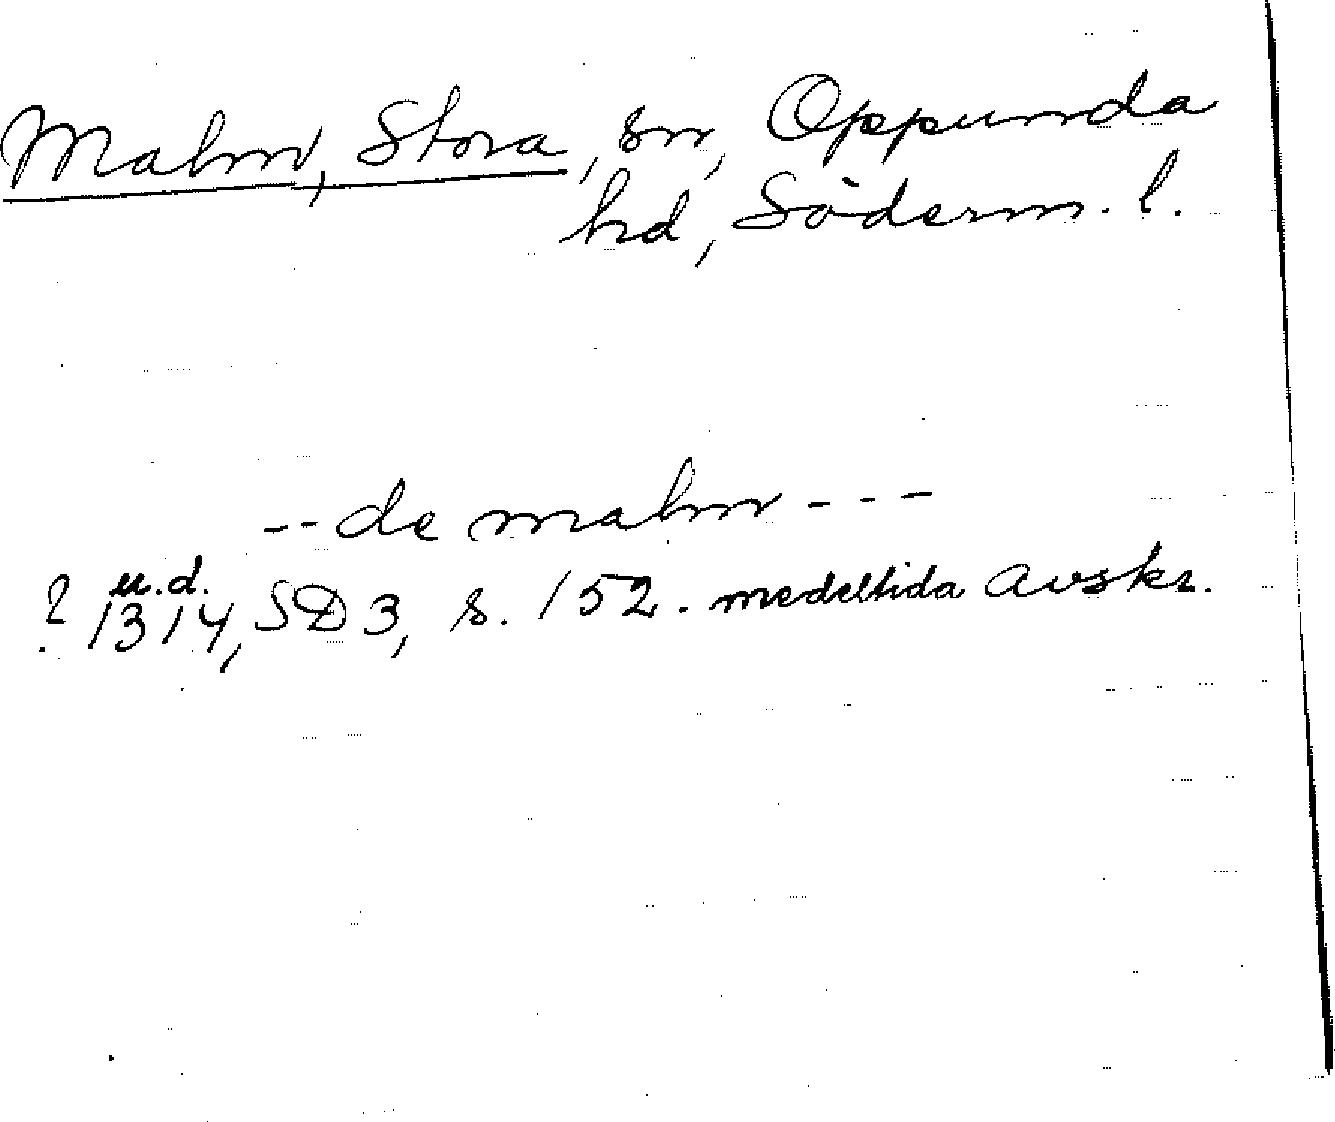 Malm, Stora, sn, Oppunda
hd, Söderm. l.
-- de malm ---
? u.d.
1314, SD 3, s. 152. medeltida avskr.